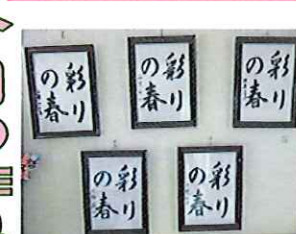 彩り
の春
彩り
の春
彩り
の春
彩り
の春
彩り
の春